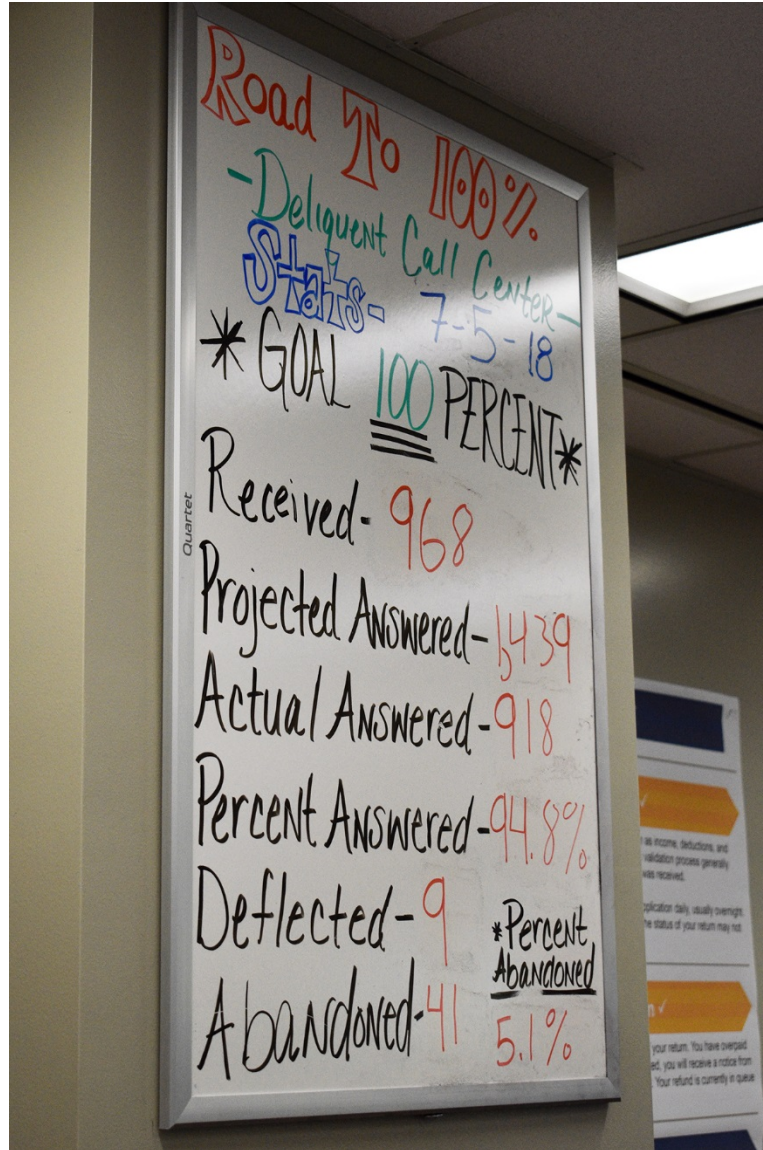 Road To 100%
-Deliquent Call Center-
Stats- 7-5-18
*GOAL 100 PERCENT*
Received- 968
Projected Answered- 1,439
Actual Answered- 918
Percent Answered- 94.8%
Deflected- 9
*Percent
Abandoned
Abandoned- 41
5.1%
Quartet
as income, deductions, and
validation process generally
was received.
plication daily, usually overnight.
he status of your return may not
your return. You have overpaid
ed, you will receive a notice from
Your refund is currently in queue